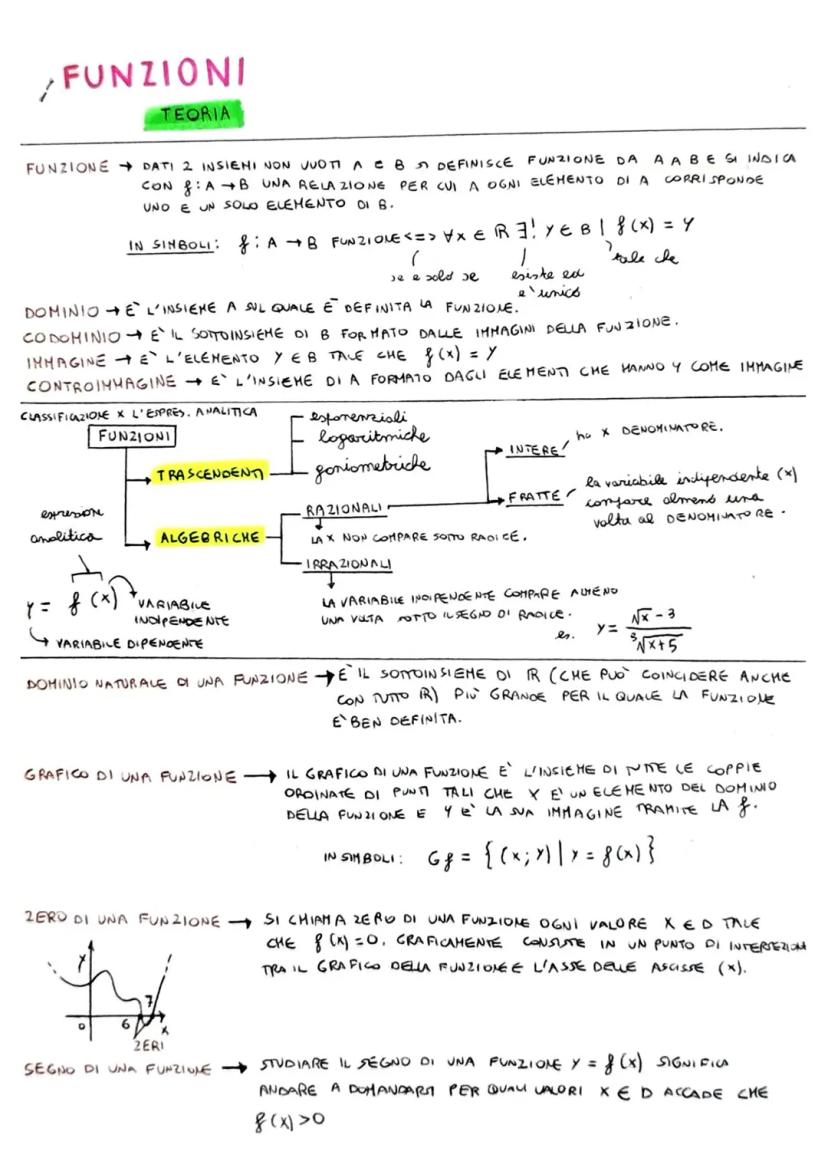 FUNZIONI
TEORIA
FUNZIONE → DATI 2 INSIEMI NON VUOTI A E B SI DEFINISCE FUNZIONE DA A A B E SI INDICA
CON f: A → B UNA RELAZIONE PER CUI A OGNI ELEMENTO DI A CORRISPONDE
UNO E UN SOLO ELEMENTO DI B.
IN SIMBOLI: f: A → B FUNZIONE <=> ∀x ∈ ℝ ∃! y ∈ B | f(x) = y
se e solo se
esiste ed
e' unico
tale che
DOMINIO → E' L'INSIEME A SUL QUALE E' DEFINITA LA FUNZIONE.
CODOMINIO → E' IL SOTTOINSIEME DI B FORMATO DALLE IMMAGINI DELLA FUNZIONE.
IMMAGINE → E' L'ELEMENTO Y ∈ B TALE CHE f(x) = y
CONTROIMMAGINE → E' L'INSIEME DI A FORMATO DAGLI ELEMENTI CHE HANNO Y COME IMMAGINE
CLASSIFICAZIONE X L'ESPRES. ANALITICA
FUNZIONI
TRASCENDENTI
esponenziali
logaritmiche
goniometriche
ALGEBRICHE
RAZIONALI
LA X NON COMPARE SOTTO RADICE.
INTERE
no X DENOMINATORE.
FRATTE
la variabile indipendente (x)
compare almeno una
volta al DENOMINATORE.
IRRAZIONALI
LA VARIABILE INDIPENDENTE COMPARE ALMENO
UNA VOLTA SOTTO IL SEGNO DI RADICE.
es. y = √x - 3 / ³√x+5
espressione
analitica
y = f(x)
VARIABILE
INDIPENDENTE
VARIABILE DIPENDENTE
DOMINIO NATURALE DI UNA FUNZIONE → E' IL SOTTOINSIEME DI ℝ (CHE PUO' COINCIDERE ANCHE
CON TUTTO ℝ) PIU' GRANDE PER IL QUALE LA FUNZIONE
E' BEN DEFINITA.
GRAFICO DI UNA FUNZIONE → IL GRAFICO DI UNA FUNZIONE E' L'INSIEME DI TUTTE LE COPPIE
ORDINATE DI PUNTI TALI CHE X E' UN ELEMENTO DEL DOMINIO
DELLA FUNZIONE E Y E' LA SUA IMMAGINE TRAMITE LA f.
IN SIMBOLI: Gf = {(x;y) | y = f(x)}
ZERO DI UNA FUNZIONE → SI CHIAMA ZERO DI UNA FUNZIONE OGNI VALORE X ∈ D TALE
CHE f(x)=0. GRAFICAMENTE CONSISTE IN UN PUNTO DI INTERSEZIONE
TRA IL GRAFICO DELLA FUNZIONE E L'ASSE DELLE ASCISSE (x).
y
7
0
6
x
ZERI
SEGNO DI UNA FUNZIONE → STUDIARE IL SEGNO DI UNA FUNZIONE y = f(x) SIGNIFICA
ANDARE A DOMANDARSI PER QUALI VALORI X ∈ D ACCADE CHE
f(x)>0